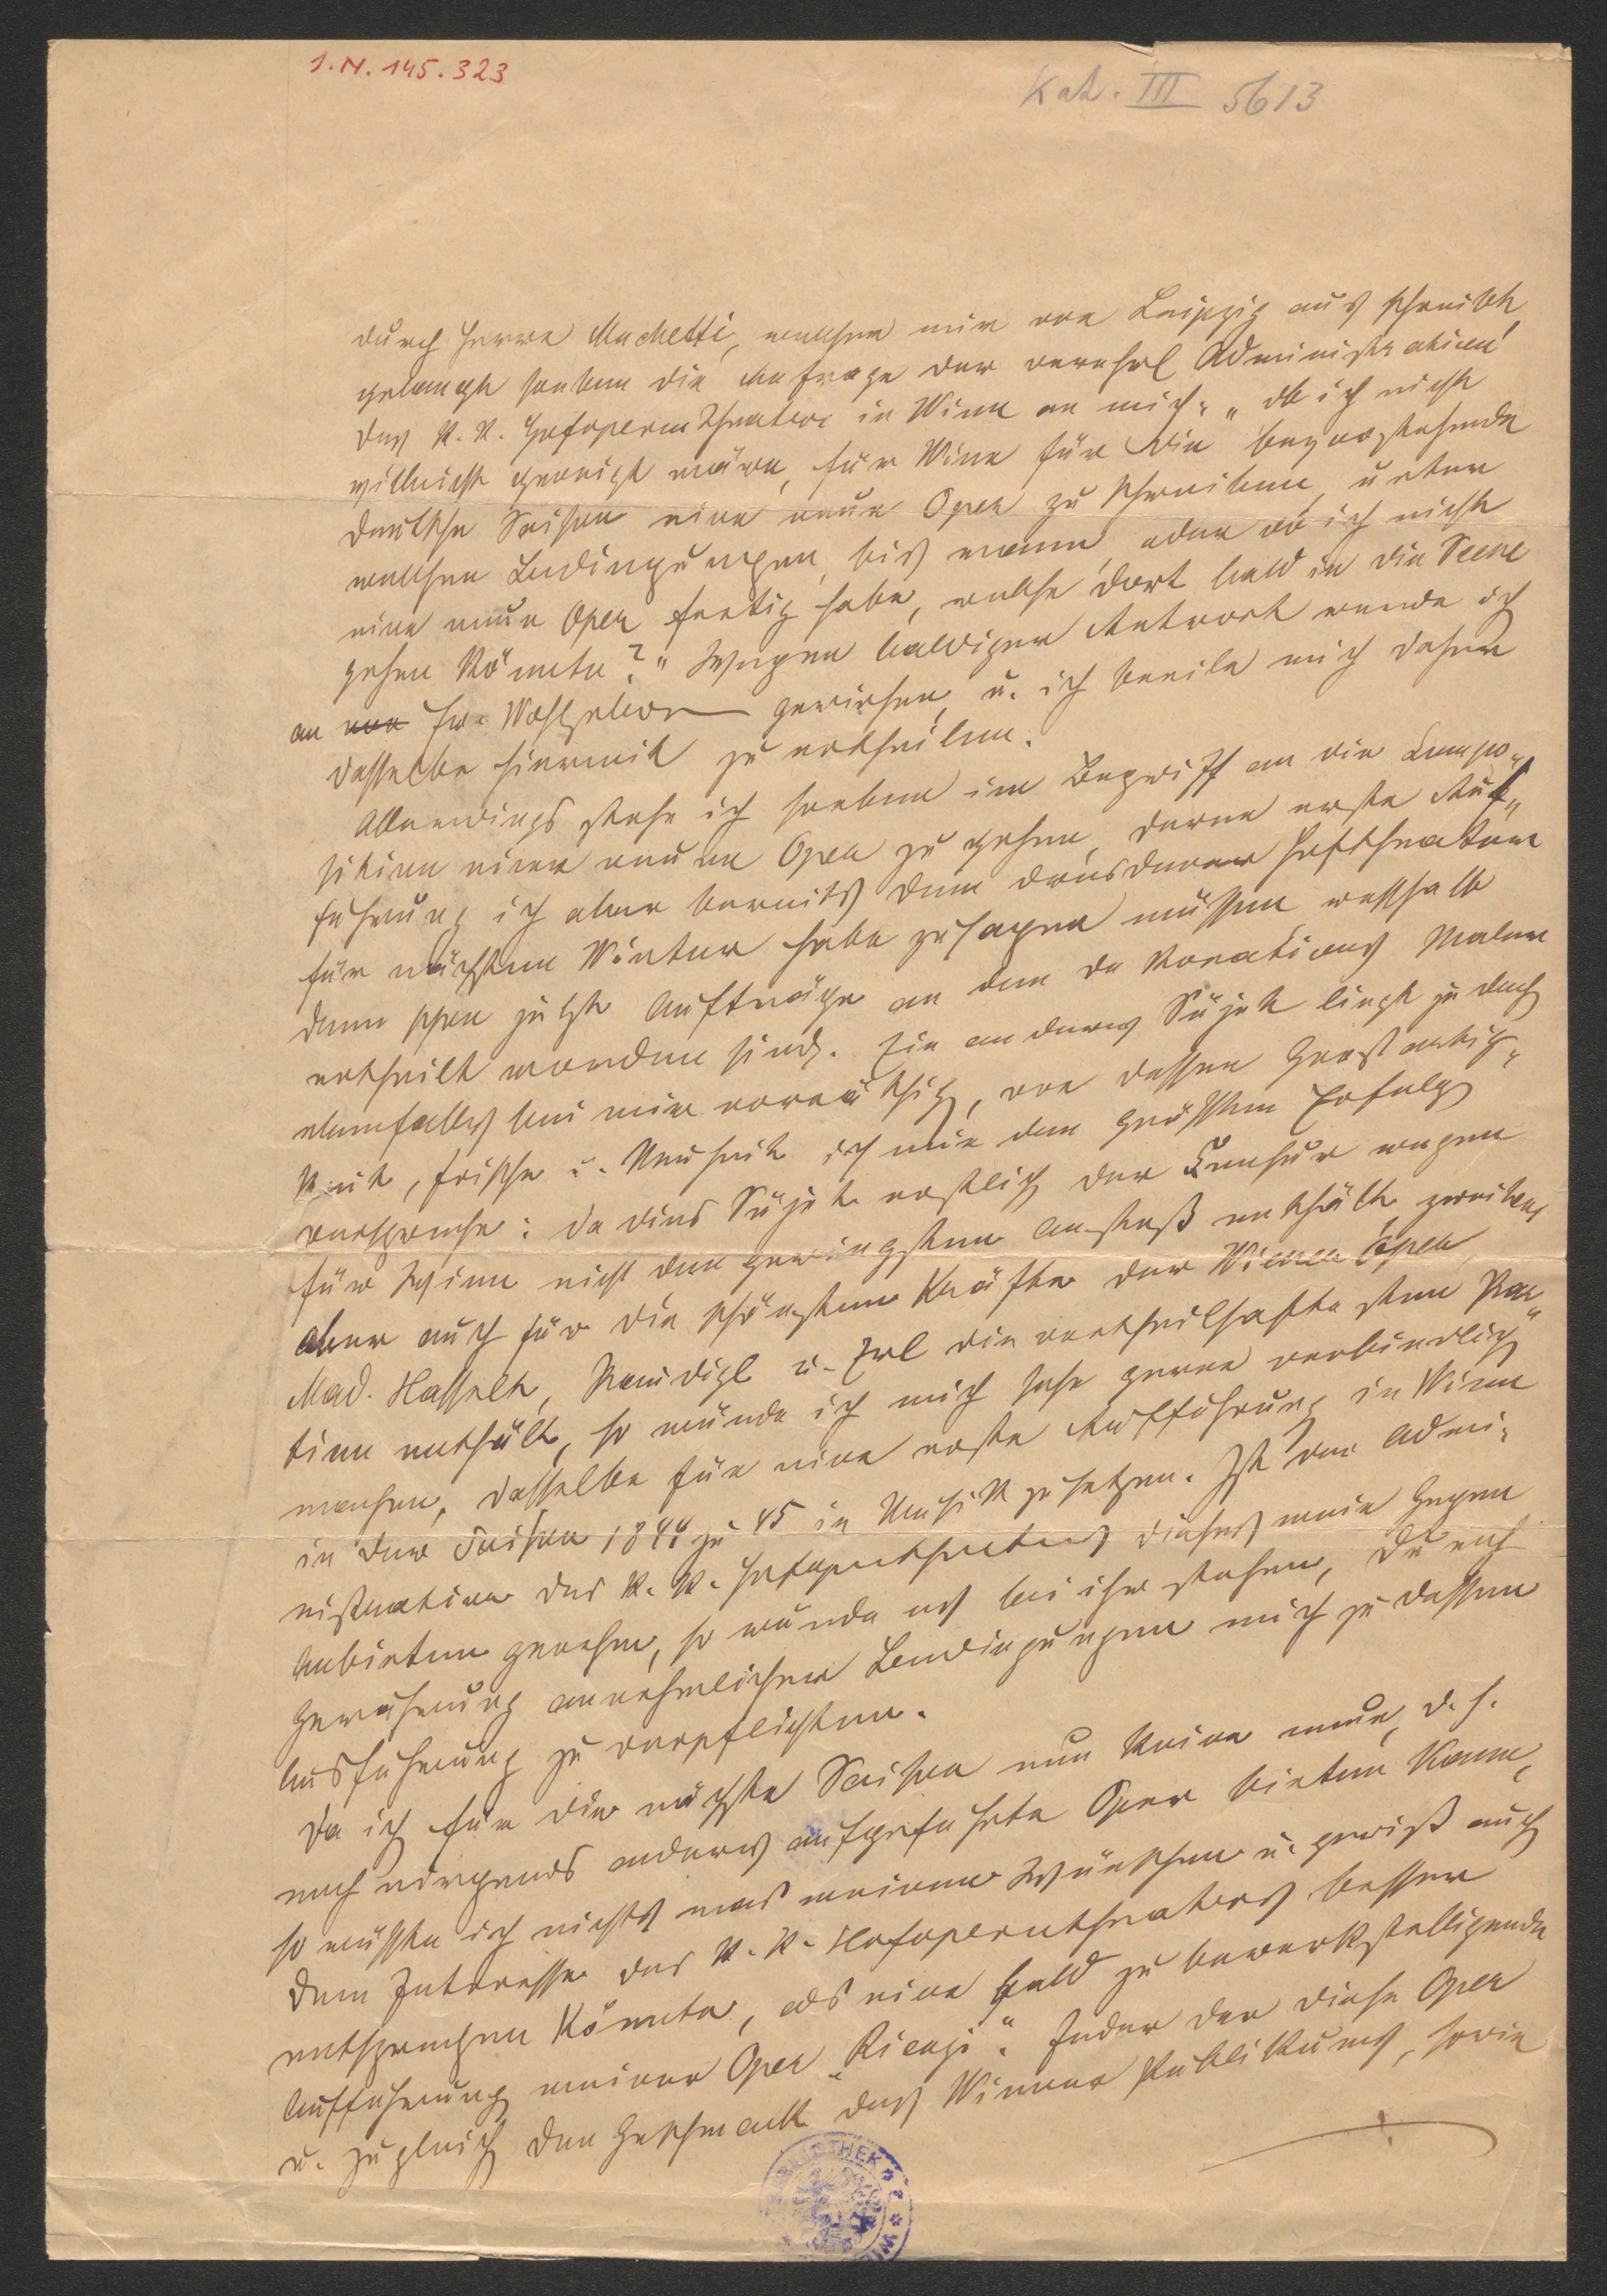 I.N. 145.323
Kat. III 5613
durch Herrn Machetti, welcher mir von Leipzig aus schreibt
gelangte soeben die Anfrage der verehrl Administration
des K. K. Hofoperntheaters in Wien an mich: „ob ich nicht
vielleicht geneigt wäre, für Wien für die bevorstehende
deutsche Saison eine neue Oper zu schreiben, unter
welchen Bedingungen, bis wann, oder ob ich nicht
eine neue Oper fertig habe, welche dort bald in die Scene
gehen könnte?" Wegen baldiger Antwort wurde ich
an von Ew. Wohlgeboren gewiesen, u. ich beeile mich daher
dasselbe hiermit zu ertheilen.
Allerdings stehe ich soeben im Begriff an die Compo-
sition einer neuen Oper zu gehen, deren erste Auf-
führung ich aber bereits dem dresdener Hoftheater
für nächsten Winter habe zusagen müssen weßhalb
denn schon jetzt Aufträge an den Dekorations Maler
ertheilt worden sind. Ein anderes Süjet liegt jedoch
ebenfalls bei mir vorräthig, von dessen Großartig-
keit, Frische u. Neuheit ich mir den größten Erfolg
verspreche: da dies Süjet erstlich der Censur wegen
für Wien nicht den geringsten Anstoß enthält, zweitens
aber auch für die schönsten Kräfte der Wiener Oper,
Mad. Hasselt, Staudigl u. Erl die vortheilhaftesten Par-
tien enthält, so würde ich mich sehr gerne verbindlich
machen, dasselbe für eine erste Aufführung in Wien
in der Saison 1844 zu 45 in Musik zu setzen. Ist der Admi-
nistration des K. K. Hofoperntheaters dieses mein Gegen
Anbieten genehm, so würde es bei ihr stehen, durch
Gewährung annehmlicher Bedingungen mich zu dessen
Ausführung zu verpflichten.
Da ich für die nächste Saison nun keine neue, d. h.
noch nirgends anders aufgeführte Oper bieten kann,
so wüßte ich nichts was meinen Wünschen u. gewiß auch
dem Interesse des K. K. Hofoperntheaters besser
entsprechen könnte, als eine bald zu bewerkstelligende
Aufführung meiner Oper „Rienzi". Jeder der diese Oper
u. zugleich den Geschmack des Wiener Publikums, sowie